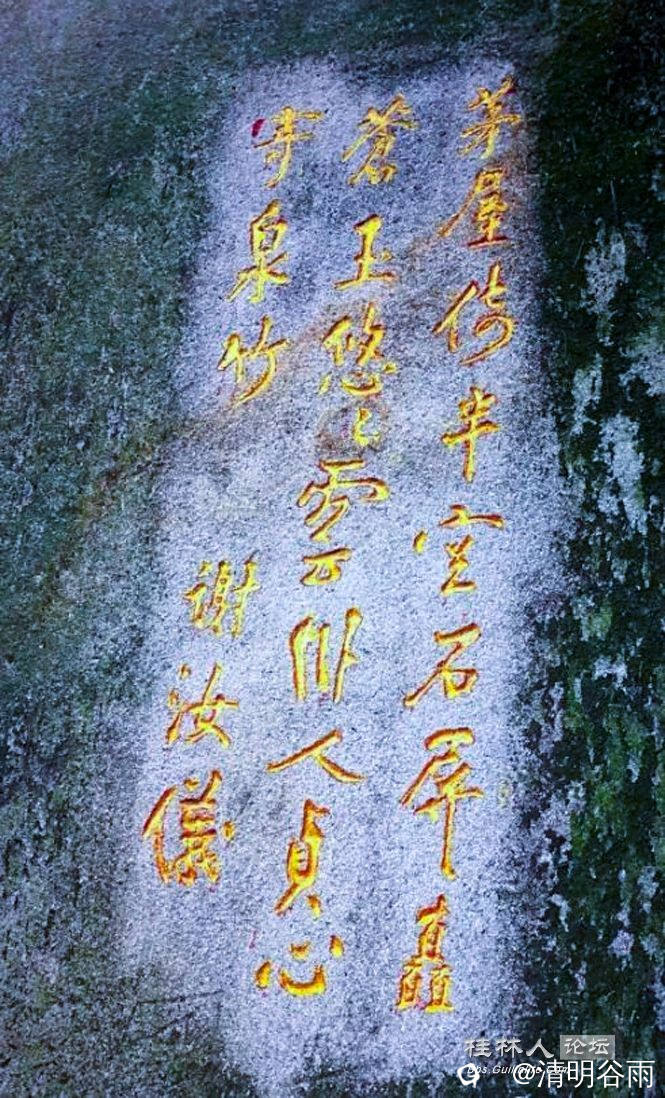 茅屋倚半空石屏矗
蒼玉悠々雲卧人貞心
寄泉竹
謝汝儀
桂林人论坛
@清明谷雨